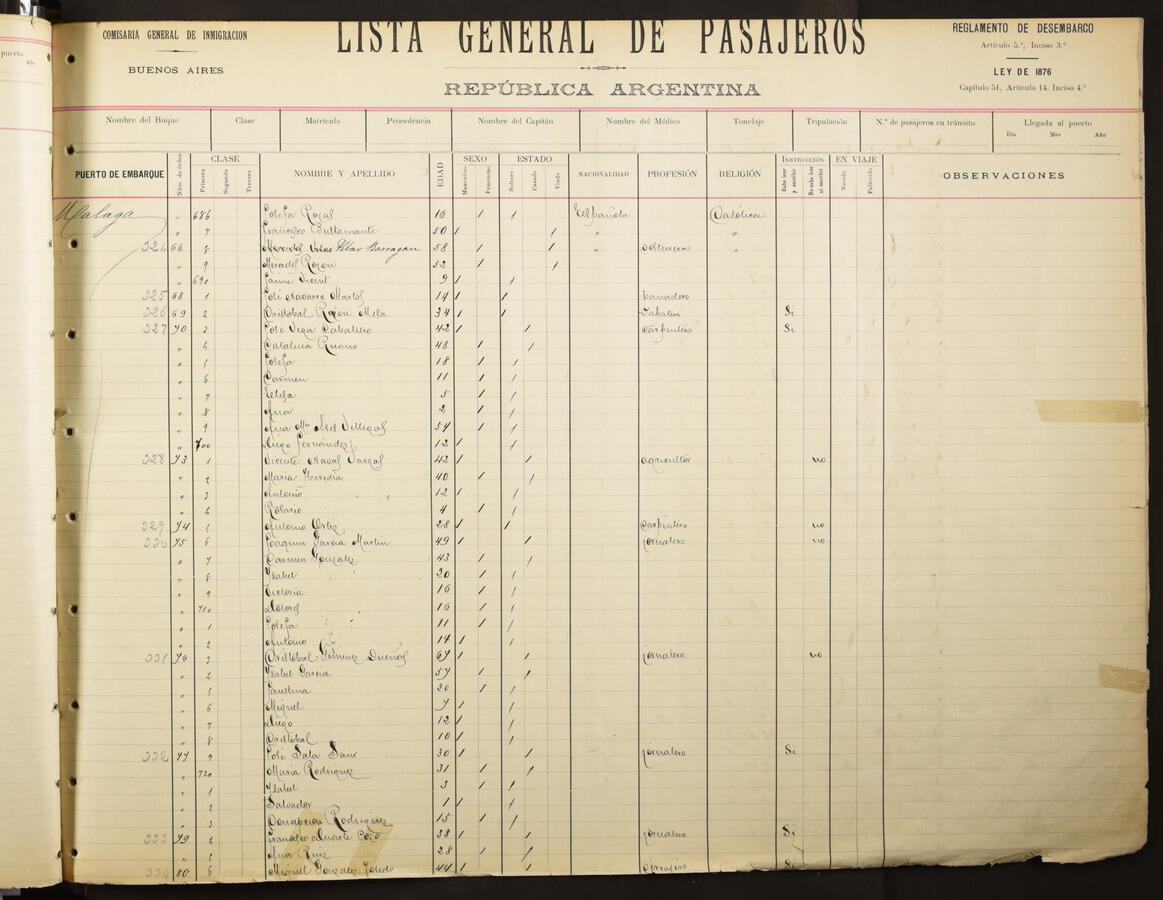 COMISARIA GENERAL DE INMIGRACION
BUENOS AIRES
LISTA GENERAL DE PASAJEROS
REPÚBLICA ARGENTINA
REGLAMENTO DE DESEMBARCO
Artículo 5.º, Inciso 3.º
LEY DE 1876
Capítulo 51, Artículo 14, Inciso 4.º
puerto
Año
Nombre del Buque Clase Matrícula Procedencia Nombre del Capitán Nombre del Médico Tonelaje Tripulación N.º de pasajeros en tránsito Llegada al puerto
Día Mes Año
PUERTO DE EMBARQUE Núm. de orden CLASE NOMBRE Y APELLIDO EDAD SEXO ESTADO NACIONALIDAD PROFESIÓN RELIGIÓN INSTRUCCIÓN EN VIAJE OBSERVACIONES
Primera Segunda Tercera Masculino Femenino Soltero Casado Viudo Sabe leer y escribir No sabe leer ni escribir Nacido Fallecido
Malaga " 686 Josefa Rojas 10 / / Española Católica
" 7 Francisco Bustamante 50 / / " "
324 66 8 Mercedes Villar Barragan 58 / / " costurera
" 9 Mercedes Rojon 52 / /
" 690 Jaime Vicent 9 / /
325 68 1 José Navarro Martos 14 / / panadero
326 69 2 Cristobal Mesa 34 / / Zapatero Si
327 70 3 José Vega Caballero 42 / / carpintero Si
" 4 Catalina Ruano 48 / /
" 5 Josefa 18 / /
" 6 Carmen 11 / /
" 7 Elisa 5 / /
" 8 Ana 2 / /
" 9 Ana Mª Villegas 54 / /
" 700 Diego Fernandez 12 / /
328 73 1 Vicente Naval Vargas 42 / / agricultor no
" 2 Maria Heredia 40 / /
" 3 Antonio 12 / /
" 4 Rosario 4 / /
329 74 5 Antonio Ortiz 28 / / carpintero no
330 75 6 Joaquin Garcia Martin 49 / / jornalero no
" 7 Carmen Gonzalez 43 / /
" 8 Ysabel 20 / /
" 9 Victoria 16 / /
" 710 Dolores 16 / /
" 1 Josefa 11 / /
" 2 Antonio 14 / /
331 76 3 Cristobal Gimenez Dueñas 67 / / jornalero no
" 4 Ysabel Garcia 57 / /
" 5 Faustina 20 / /
" 6 Miguel 7 / /
" 7 Diego 12 / /
" 8 Cristobal 10 / /
332 77 9 José Sala 30 / / jornalero Si
" 720 Maria Rodriguez 31 / /
" 1 Ysabel 3 / /
" 2 Salvador 1 / /
" 3 Concepcion Rodriguez 15 / /
333 79 4 Francisco Duarte 38 / / jornalero Si
" 5 Ana Ruiz 28 / /
334 80 6 Miguel Gonzalez Toledo 44 / / cerrajero Si